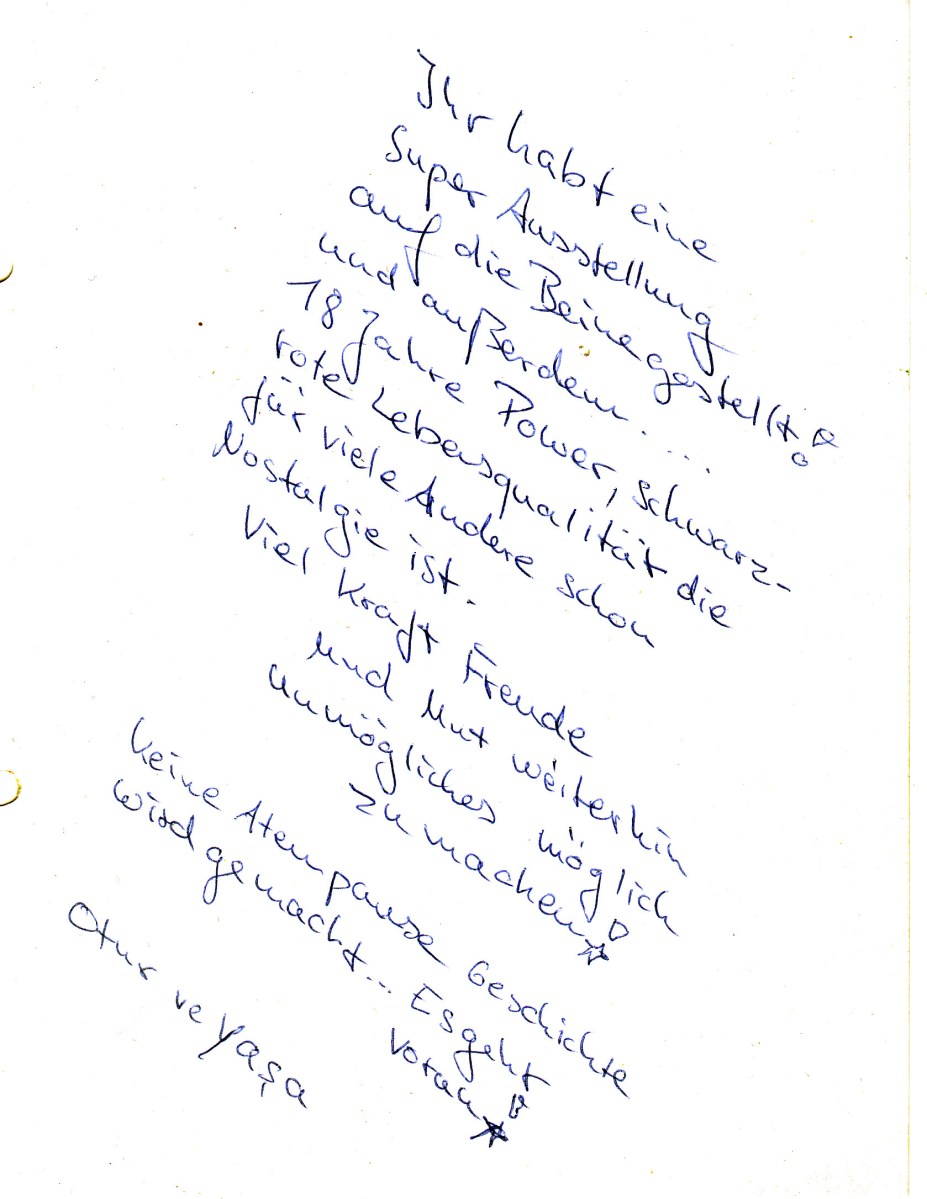 Ihr habt eine
Super Ausstellung
auf die Beine gestellt!
und außerdem...
18 Jahre Power, schwarz-
rote Lebensqualität die
für viele Andere schon
Nostalgie ist.
Viel Kraft Freude
und Mut weiterhin
unmögliches möglich
zu machen!
keine Atempause Geschichte
wird gemacht... Es geht
voran!
Otur ve Yaşa